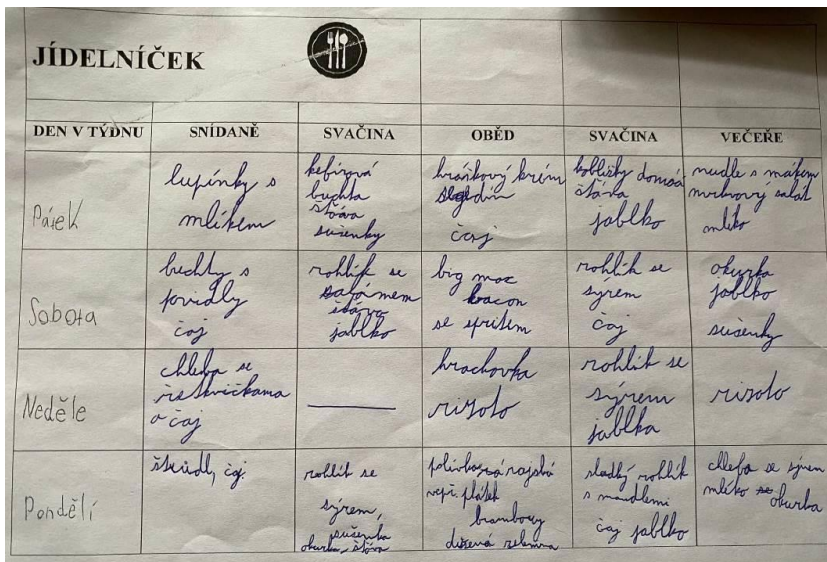 JÍDELNÍČEK
DEN V TÝDNU SNÍDANĚ SVAČINA OBĚD SVAČINA VEČEŘE
Pátek
lupínky s
mlíkem
kefírová
buchta
šťáva
sušenky
hráškový krém
čaj
koblížky domácí
šťáva
jablko
nudle s mákem
mrkvový salát
mlíko
Sobota
buchty s
povidly
čaj
rohlík se
salámem
šťáva
jablko
big mac
bacon
se spritem
rohlík se
sýrem
čaj
okurka
jablko
sušenky
Neděle
chleba se
řetkvičkama
a čaj
hrachovka
rizoto
rohlík se
sýrem
jablka
rizoto
Pondělí
štrúdl, čaj
rohlík se
sýrem,
sušenka
okurka, šťáva
polívka rajská
vepř. plátek
brambory
dušená zelenina
sladký rohlík
s mandlemi
čaj jablko
chleba se sýrem
mlíko okurka